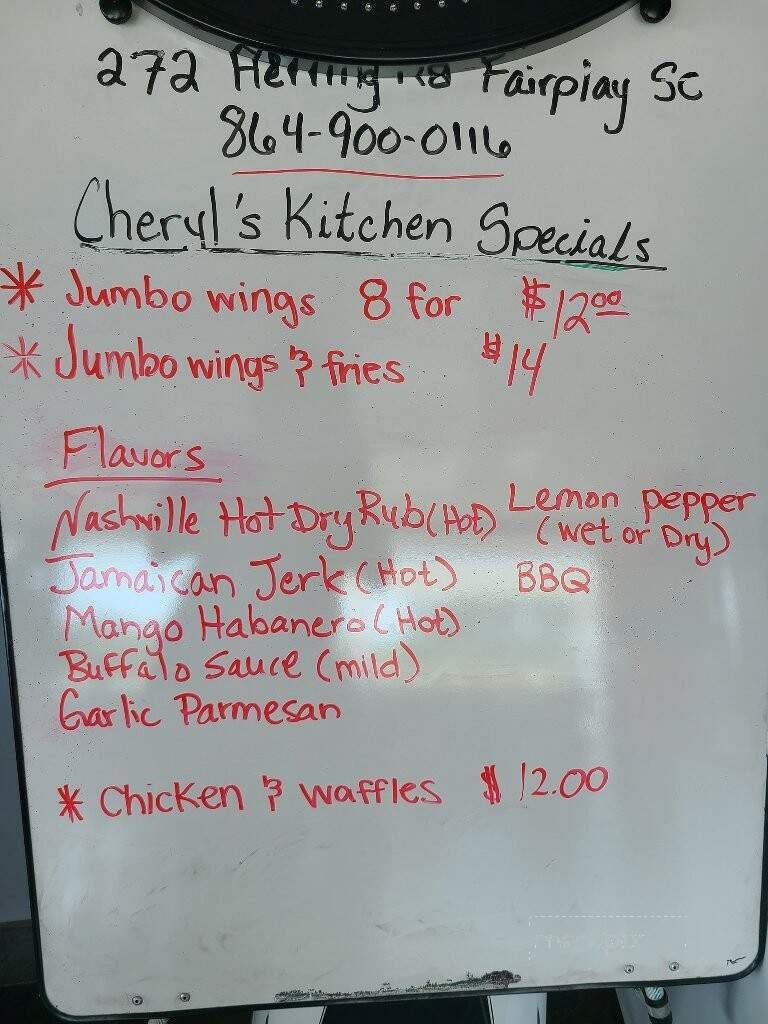 272 Fairplay SC
864-900-0116
Cheryl's Kitchen Specials
* Jumbo wings 8 for $12.00
* Jumbo wings & fries $14
Flavors
Nashville Hot Dry Rub (Hot) Lemon pepper
(wet or Dry)
Jamaican Jerk (Hot) BBQ
Mango Habanero (Hot)
Buffalo sauce (mild)
Garlic Parmesan
* Chicken & waffles $12.00